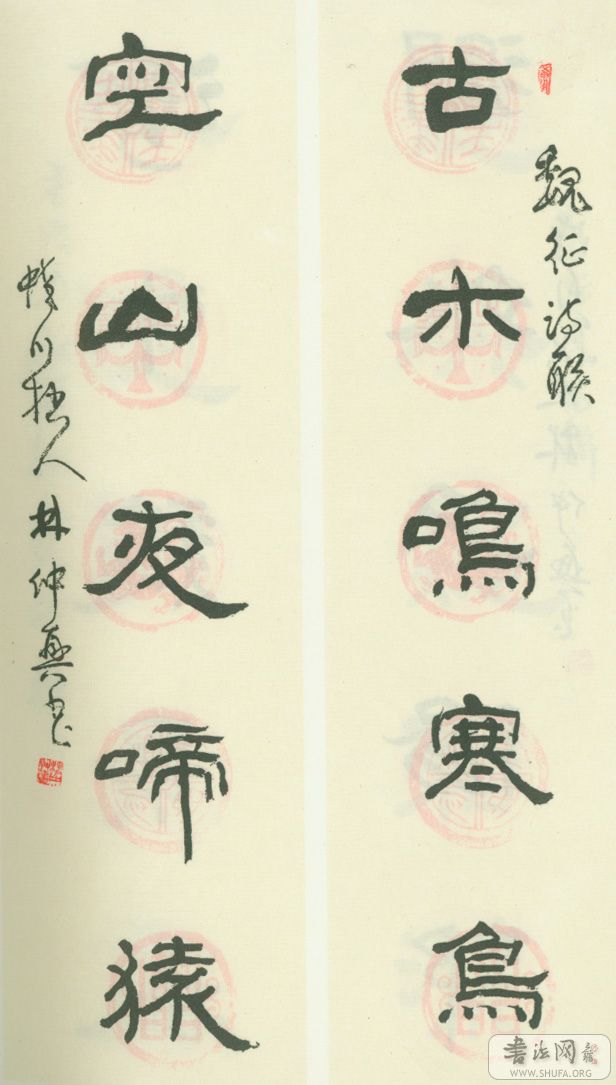 古木鳴寒鳥
魏征诗联
空山夜啼猿
林仲興书
书法网
WWW.SHUFA.ORG